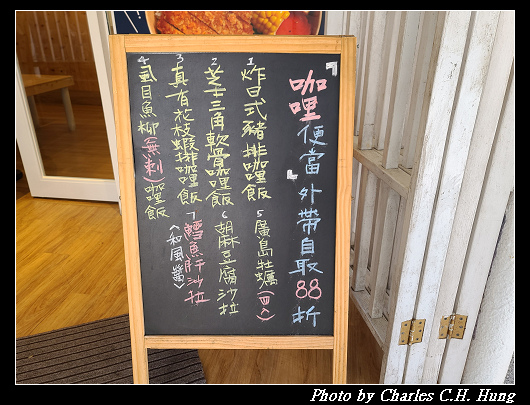 「咖哩」便當外帶自取88折
1 炸日式豬排咖哩飯
2 芝士三角軟骨咖哩飯
3 真有花枝蝦排咖哩飯
4 虱目魚柳(無刺)咖哩飯
5 廣島牡蠣(四入)
6 胡麻豆腐沙拉
7 鱈魚肝沙拉
(和風醬)
Photo by Charles C.H. Hung